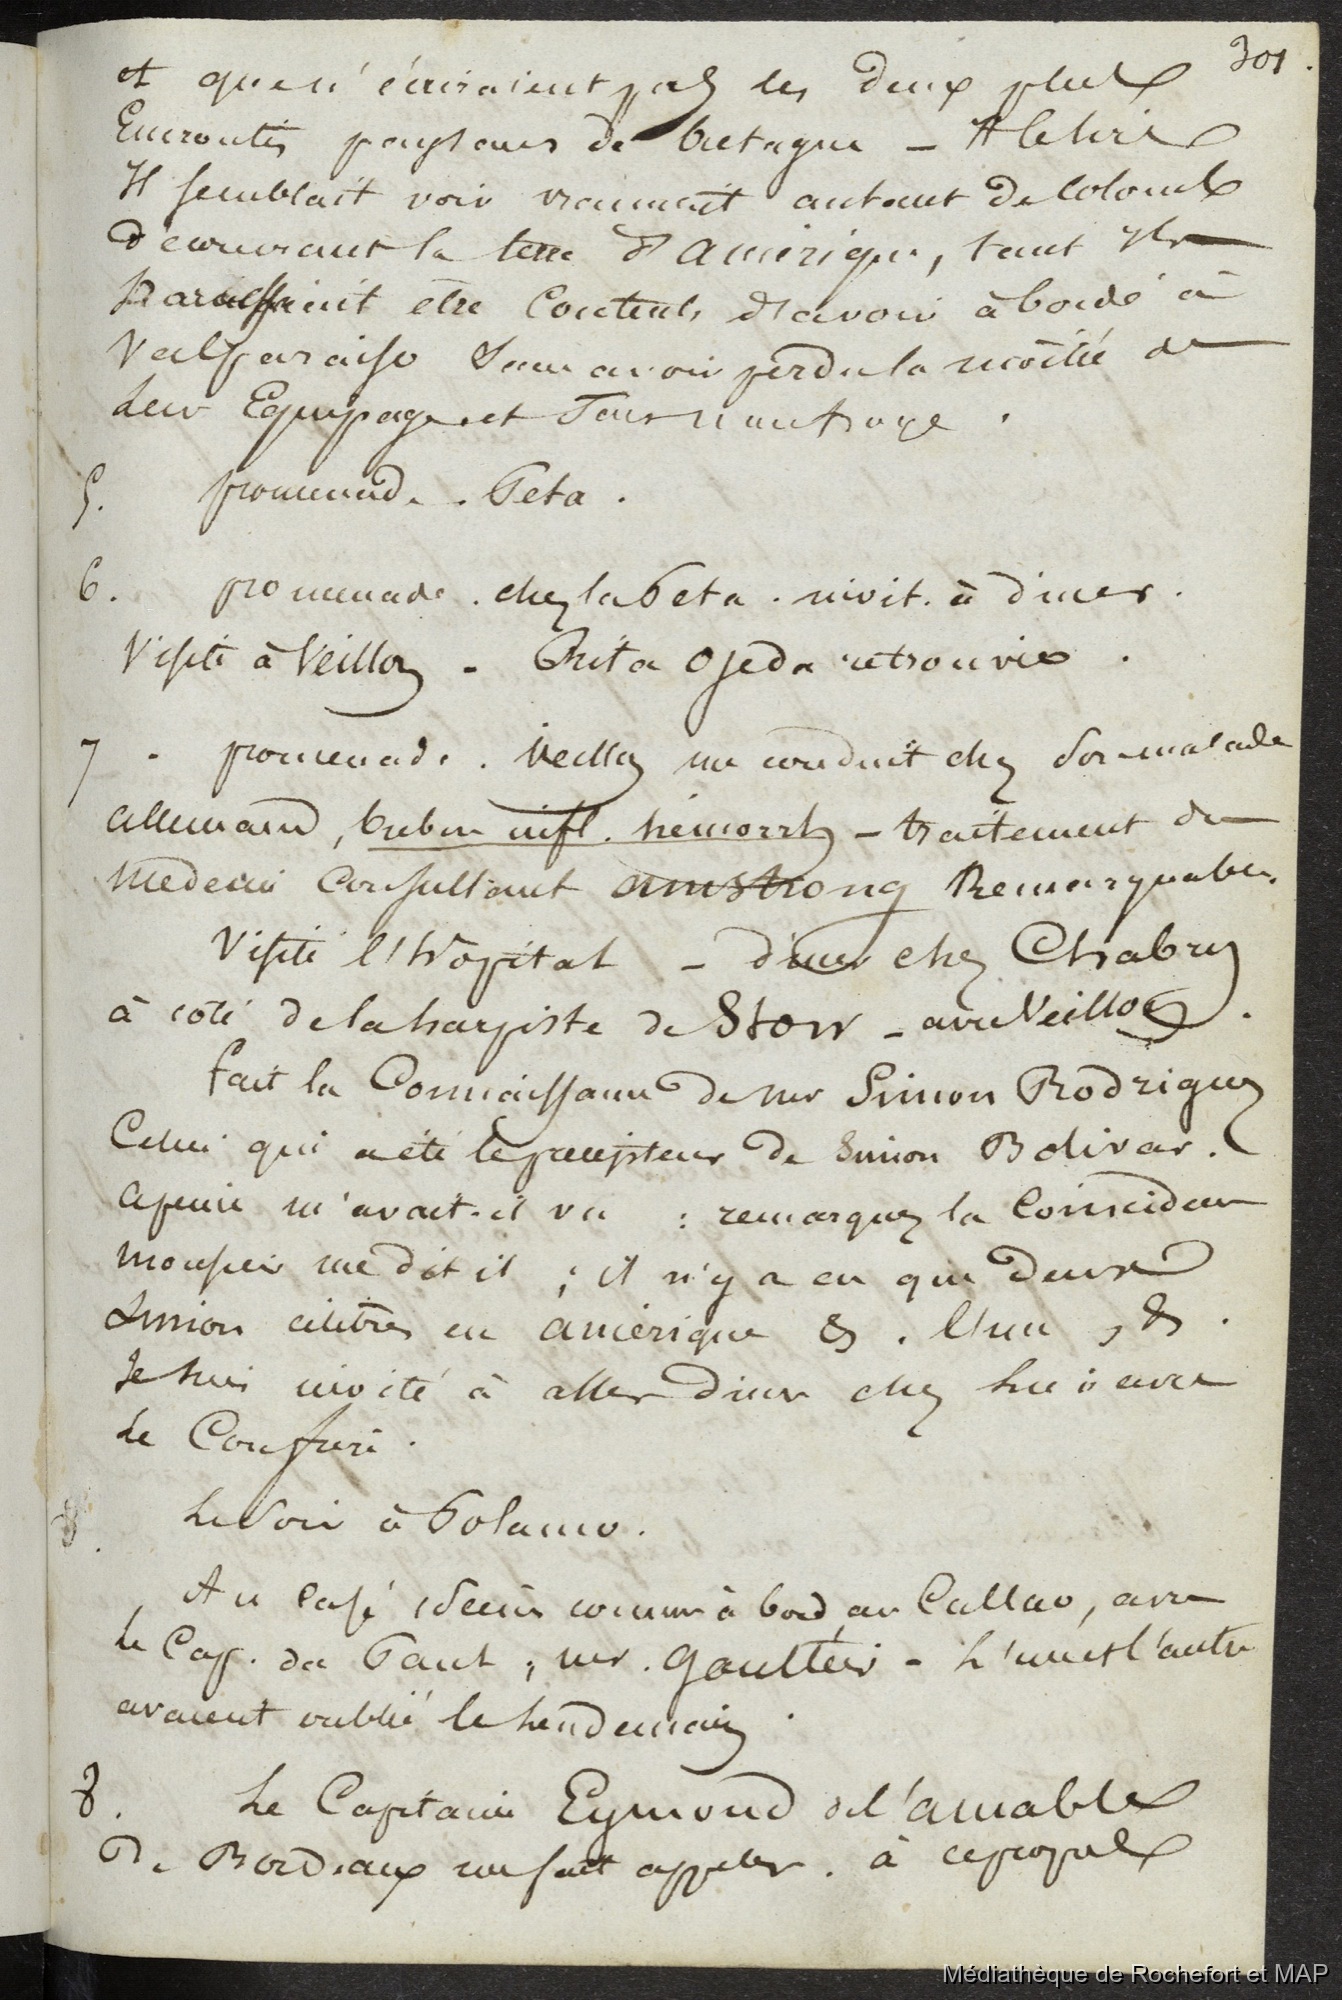 301.
et que n'écriraient pas les deux plus
Encroutés paysans de bretagne - 
Il semblait voir vraiment autant de Colomb
découvrant la terre d'amérique, tant ils
Paraissaient être Contents d'avoir abordé à
Valparaiso Sans avoir perdu la moitié de
Leur Equipage et Sans naufrage.
5. promenade. Peta.
6. promenade. chez la Peta. invit. à diner.
Visite à Veillon - Rita Ojeda retrouvée.
7. promenade. Veillon me conduit chez Son malade
allemand, bubon infl. hémorrh - traitement du
médecin Consultant amstrong Remarquable.
Visité l'hôpital - diner chez Chabry
à côté de la harpiste de Storr - avec Veillon.
fait la Connaissance de mr Simon Rodriguez
Celui qui a été le précepteur de Simon Bolivar.
apeine m'avait-il vu : remarquez la Coincidence
Monsieur me dit il ; il n'y a eu que deux
Simon célèbres en amérique &. l'un, &.
Je suis invité à aller diner chez lui avec
Le Confrère.
Le Soir à Polanco.
Au Café scène comme à bord au Callao, avec
le Cap. du , mr. Gaultier - L'un et l'autre
avaient oublié le lendemain.
8. Le Capitaine Eymond de l'aimable
De Bordeaux me fait appeler. à ce propos
Médiathèque de Rochefort et MAP